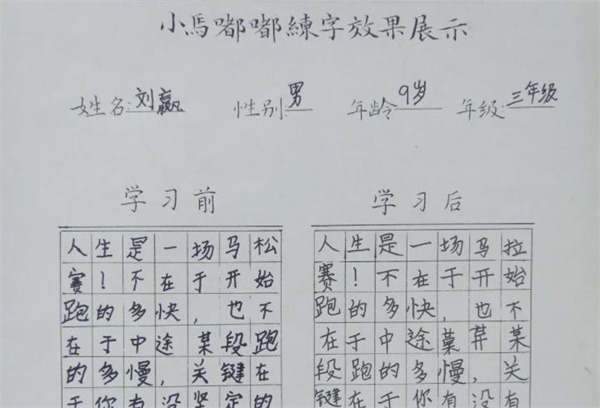 小馬嘟嘟練字效果展示
姓名:刘赢 性别:男 年龄9岁 年级:三年级
学习前
人生是一场马松
赛！不在于开始
跑的多快，也不
在于中途某段跑
的多慢，关键在
于你有没坚定的
学习后
人生是一场马拉
赛！不在于开始
跑的多快，也不
在于中途菓芹某
段跑的多慢，关
键在于你有没有